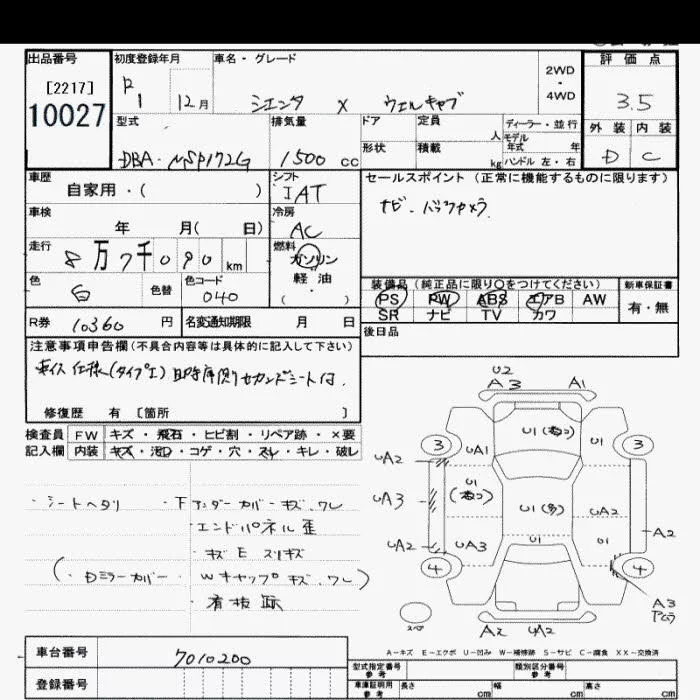 出品番号
[2217]
10027
初度登録年月
R1 12月
車名・グレード
シエンタ X ウェルキャブ
2WD
・
4WD
評価点
3.5
外装 内装
D C
型式
DBA-NSP172G
排気量
1500 cc
ドア
形状
定員 人
積載 kg
ディーラー・並行
モデル年式 年
ハンドル 左・右
車歴
自家用・( )
シフト
IAT
セールスポイント(正常に機能するものに限ります)
ナビ. バックカメラ
車検
年 月( 日)
冷房
AC
走行
8万7千090 km
燃料
ガソリン
軽油
( )
色
白
色替
色コード
040
装備品(純正品に限り○をつけてください)
PS PW ABS エアB AW
SR ナビ TV カワ
新車保証書
有・無
R券 10360 円
名変通知期限 月 日
後日品
注意事項申告欄(不具合内容等は具体的に記入して下さい)
車イス仕様(タイプI) 助手席側セカンドシート付.
修復歴 有 [箇所 ]
検査員記入欄
FW キズ・飛石・ヒビ割・リペア跡・×要
内装 キズ・汚れ・コゲ・穴・スレ・キレ・破レ
・シートヘタリ
・下アンダーカバーキズ.ワレ
・エンドパネル歪
・キズE スリキズ
(・Dミラーカバー・Wキャップキズ.ワレ)
U2
A3 A1
3 3
U1
UA1
U1
UA2
UA3
UA2
U1
U1
UA2
UA3
U1
U1
A2
4 4
A3
A2 UA2
スペア
A-キズ E-エクボ U-凹み W-補修跡 S-サビ C-腐食 XX-交換済
車台番号
7010200
登録番号
型式指定番号
参考
類別区分番号
参考
車庫証明用
参考
長さ cm 幅 cm 高さ cm